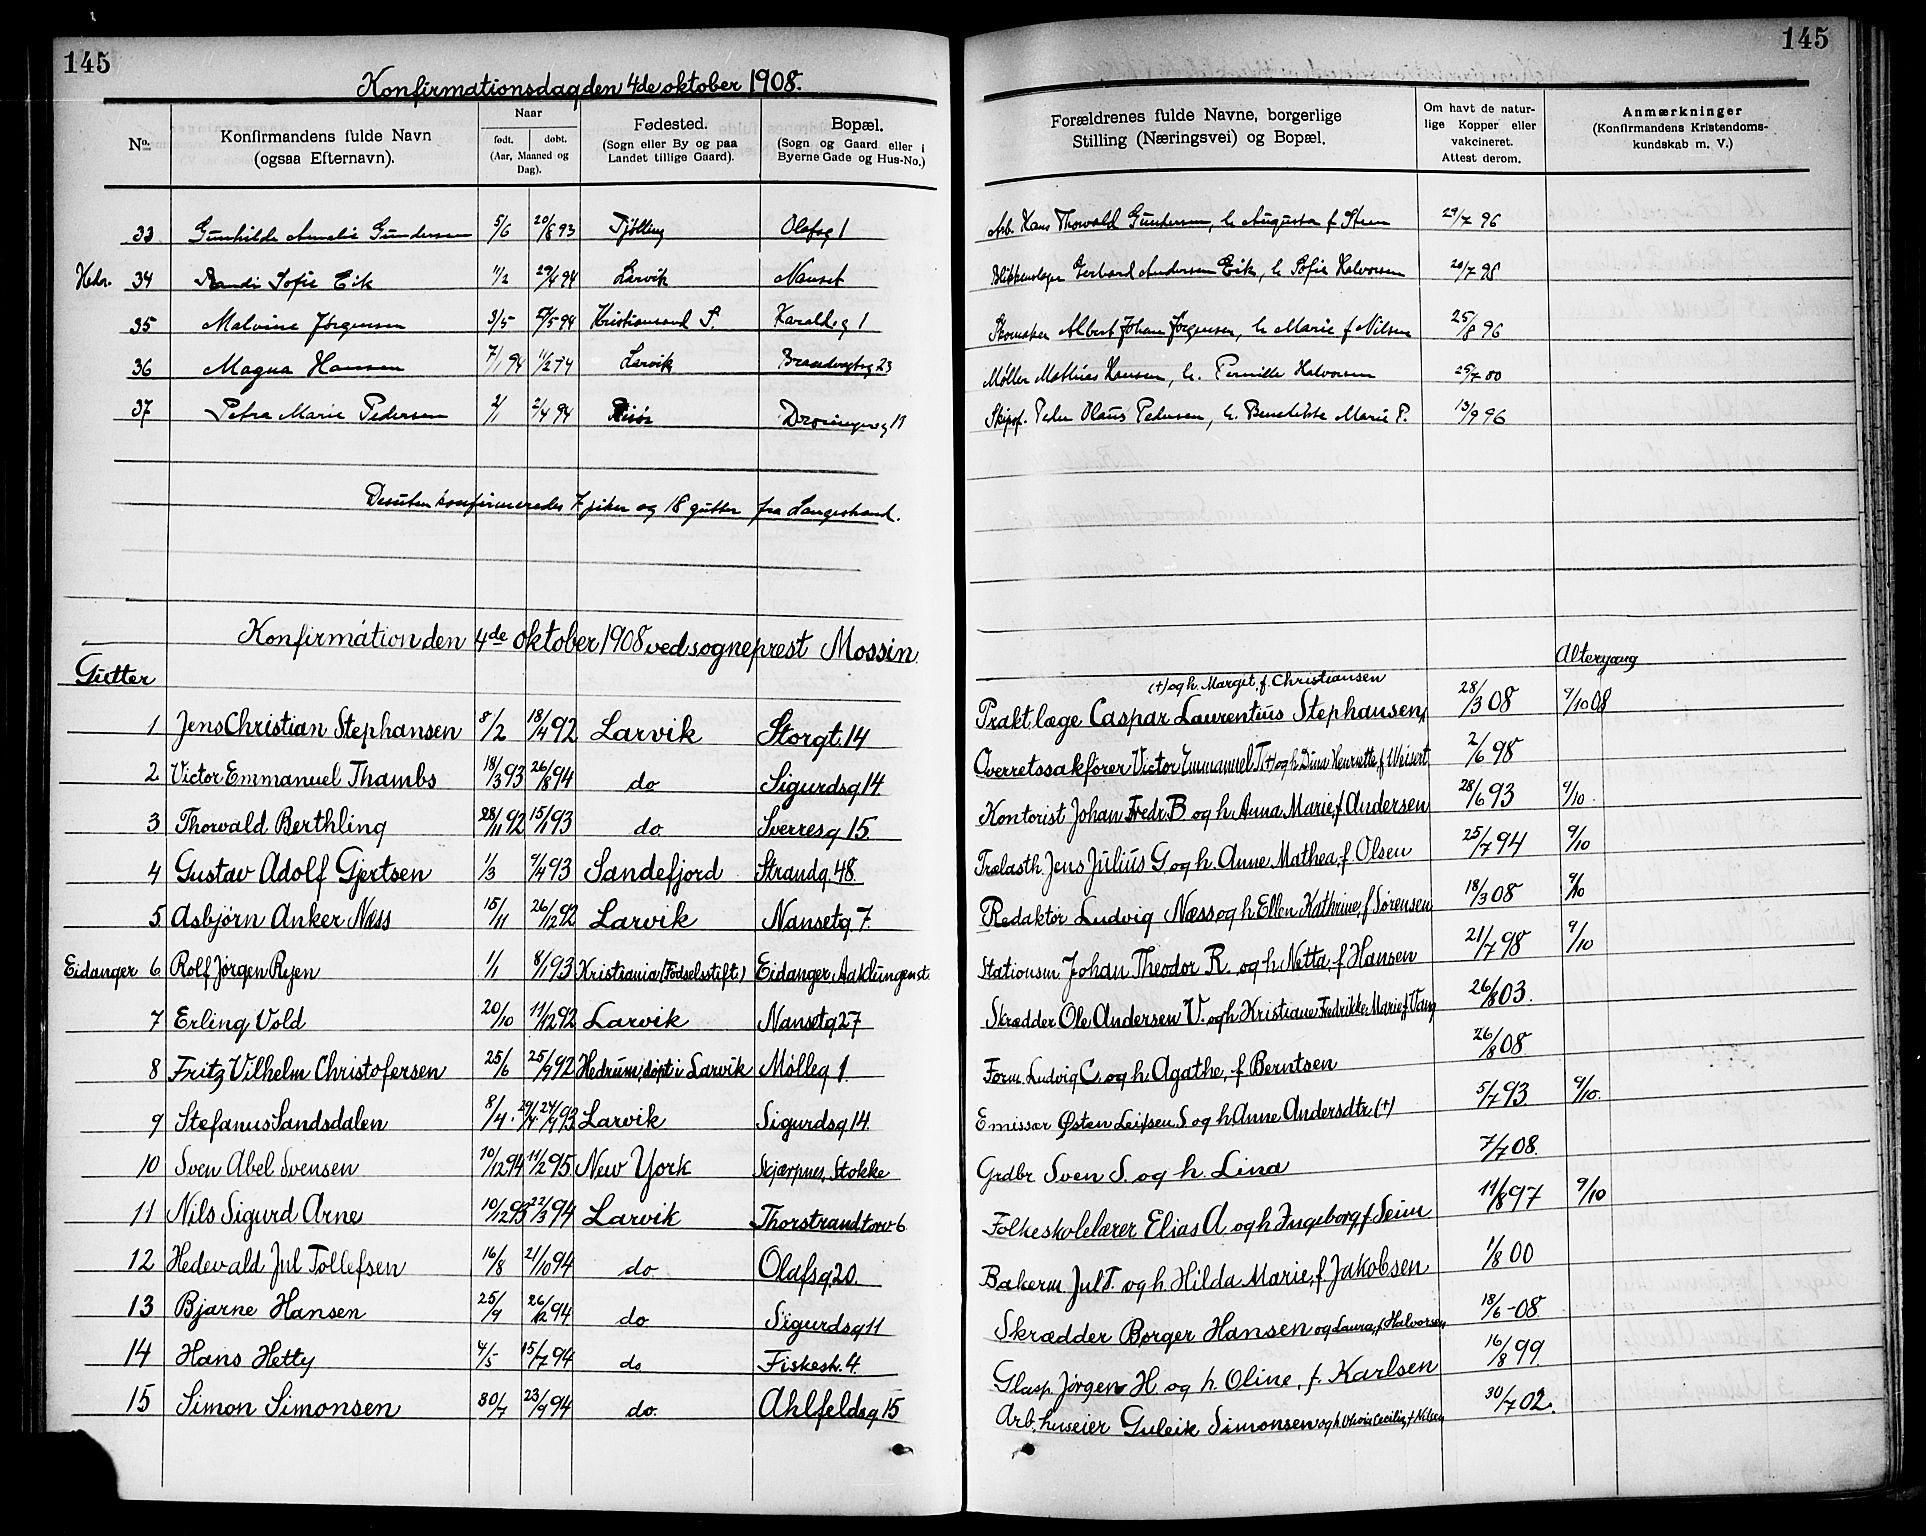 145
145
Konfirmationsdag den 4de oktober 1908.
No.
Konfirmandens fulde Navn (ogsaa Efternavn).
Naar
født. døbt.
(Aar, Maaned og Dag).
Fødested. (Sogn eller By og paa Landet tillige Gaard).
Bopæl. (Sogn og Gaard eller i Byerne Gade og Hus-No.)
Forældrenes fulde Navne, borgerlige Stilling (Næringsvei) og Bopæl.
Om havt de naturlige Kopper eller vakcineret. Attest derom.
Anmærkninger (Konfirmandens Kristendomskundskab m. V.)
33 Gunhilde Amalie Gundersen 5/6 20/8 93 Tjölling Olafsg 1 Arb. Hans Thorvald Gundersen, h. Augusta f. 29/7 96
Hedr. 34 Randi Sofie Eik 11/2 29/4 94 Larvik Nanset Blikkenslager Gerhard Andersen Eik, h. Sofie Halvorsen 20/7 98
35 Malvine Jørgensen 3/5 /5 94 Kristiansand S. Haraldsg 1 Skomaker Albert Johan Jørgensen, h. Marie f Nilsen 25/8 96
36 Magna Hansen 7/1 94 11/2 94 Larvik 23 Møller Mathias Hansen, h. Pernille Halvorsen 25/7 00
37 Petra Marie Pedersen 2/1 2/4 94 Risør Dronningensg 11 Skipsf. Peder Olaus Pedersen, h. Benedikte Marie P. 13/9 96
Desuten konfirmeredes 7 piker og 18 gutter fra Langestrand.
Konfirmation den 4de oktober 1908 ved sogneprest Mossin
Altergang
Gutter
(+) og h. Marget, f. Christiansen
1 Jens Christian Stephansen 8/2 18/4 92 Larvik Storgt. 14 Prakt. læge Caspar Laurentius Stephansen, 28/3 08 9/10 08
2 Victor Emmanuel Thambs 18/3 93 26/8 94 do Sigurdsg 14 Overretssakfører Victor Emmanuel T (+) og h Dina Henriette, f Weisert 2/6 98
3 Thorvald Berthling 28/11 92 15/1 93 do Sverresg 15. Kontorist Johan Fredr. B og h. Anna Marie, f Andersen 28/6 93 9/10.
4 Gustav Adolf Gjertsen 1/3 9/4 93 Sandefjord Strandg. 48. Trælasth. Jens Julius G. og h. Anne Mathea, f Olsen 25/7 94 9/10
5 Asbjörn Anker Næss 15/11 26/12 92 Larvik Nansetg 7. Redaktör Ludvig Næss og h Ellen Kathrine, f Sörensen 18/3 08 9/10
Eidanger 6 Rolf Jörgen Ryen 1/1 8/1 93 Kristiania (Födselsstift.) Eidanger, Aaklungen st. Stationsm Johan Theodor R. og h Netta, f Hansen 21/7 98 9/10
7 Erling Vold 20/10 11/12 92 Larvik Nansetg 27 Skrædder Ole Andersen V. og h Kristiane Fredrikke Marie, f Vang 26/8 03.
8 Fritz Vilhelm Christofersen 25/6 25/9 92 Hedrum, döpt i Larvik Mölleg 1. Form. Ludvig C. og h Agathe, f Berntsen 26/8 08.
9 Stefanus Sandsdalen 8/4. 29/4 24/9 93 Larvik Sigurdsg 14. Emissær Østen Leifsen S og h Anne Andersdtr (+) 5/7 93. 9/10.
10 Sven Abel Svensen 10/12 94 11/2 95 New York Skjærpnes, Stokke Grdbr Sven S. og h. Lina 7/7 08.
11 Nils Sigurd Arne 10/12 93 22/3 94 Larvik Thorstrandtorv 6 Folkeskolelærer Elias A. og h Ingeborg, f Seim 11/8 97 9/10
12 Hedevald Jul Tollefsen 16/8 21/10 94 do Olafsg 20. Bakerm. Jul T. og h. Hilda Marie, f Jakobsen 1/8 00
13 Bjarne Hansen 25/9 26/12 94 do Sigurdsg 11 Skrædder Borger Hansen og Laura, f Halvorsen 18/6 -08
14 Hans Hetty 4/5 15/7 94 do Fiskestr. 4. Glasp. Jörgen H og h. Oline, f. Karlsen 16/8 99.
15 Simon Simonsen 30/7 23/9 94 do. Ahlfeldsg 15 Arb., huseier Guleik Simonsen og h Cecilie, f Nilsen 30/7 02.